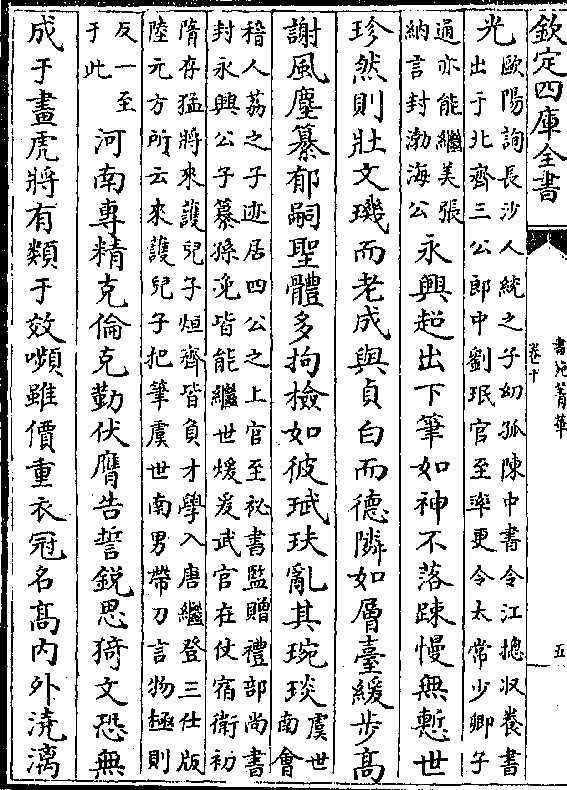 欽定四庫全書
書苑菁華
卷十
五
光歐陽詢長沙人統之子幼孤陳中書令江摠収養書
出于北齊三公郎中劉珉官至率更令太常少卿子
通亦能繼美張
納言封渤海公永興超出下筆如神不落踈慢無慙世
珍然則壯文璣而老成與貞白而德隣如層臺緩歩髙
謝風塵纂郁嗣聖體多拘檢如彼珷玞亂其琬琰虞世
南會
稽人荔之子迹居四公之上官至祕書監贈禮部尚書
封永興公子纂猻浼皆能繼世煖爰武官在仗宿衛初
隋存猛將來䕶兒子烜齊皆負才學入唐繼登三仕版
陸元方所云來䕶兒子把筆虞世南男帶刀言物極則
反一至
于此河南專精克倫克勤伏膺告誓鋭思猗文恐無
成于畫虎將有類于效嚬雖價重衣冠名髙内外澆漓